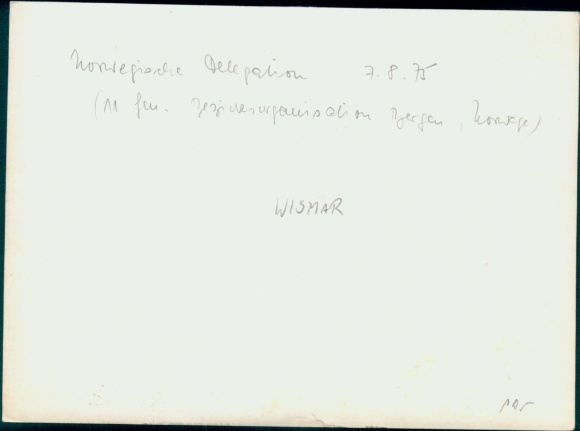 Norwegische Delegation 7.8.75
(11 Gen. Bezirksorganisation Bergen, Norwege)
WISMAR